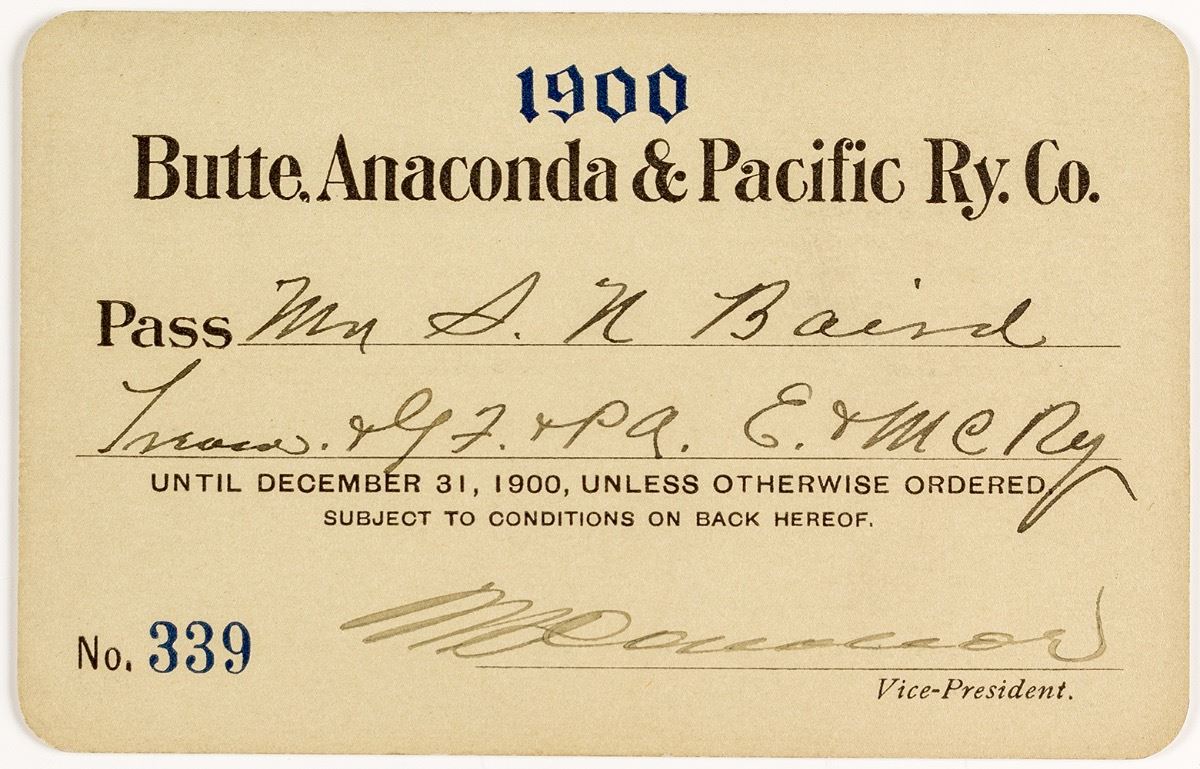 1900
Butte, Anaconda & Pacific Ry. Co.
Pass Mr S. N Baird
Treas. & G F. & P A. E. & M C Ry
UNTIL DECEMBER 31, 1900, UNLESS OTHERWISE ORDERED,
SUBJECT TO CONDITIONS ON BACK HEREOF.
No. 339
Vice-President.